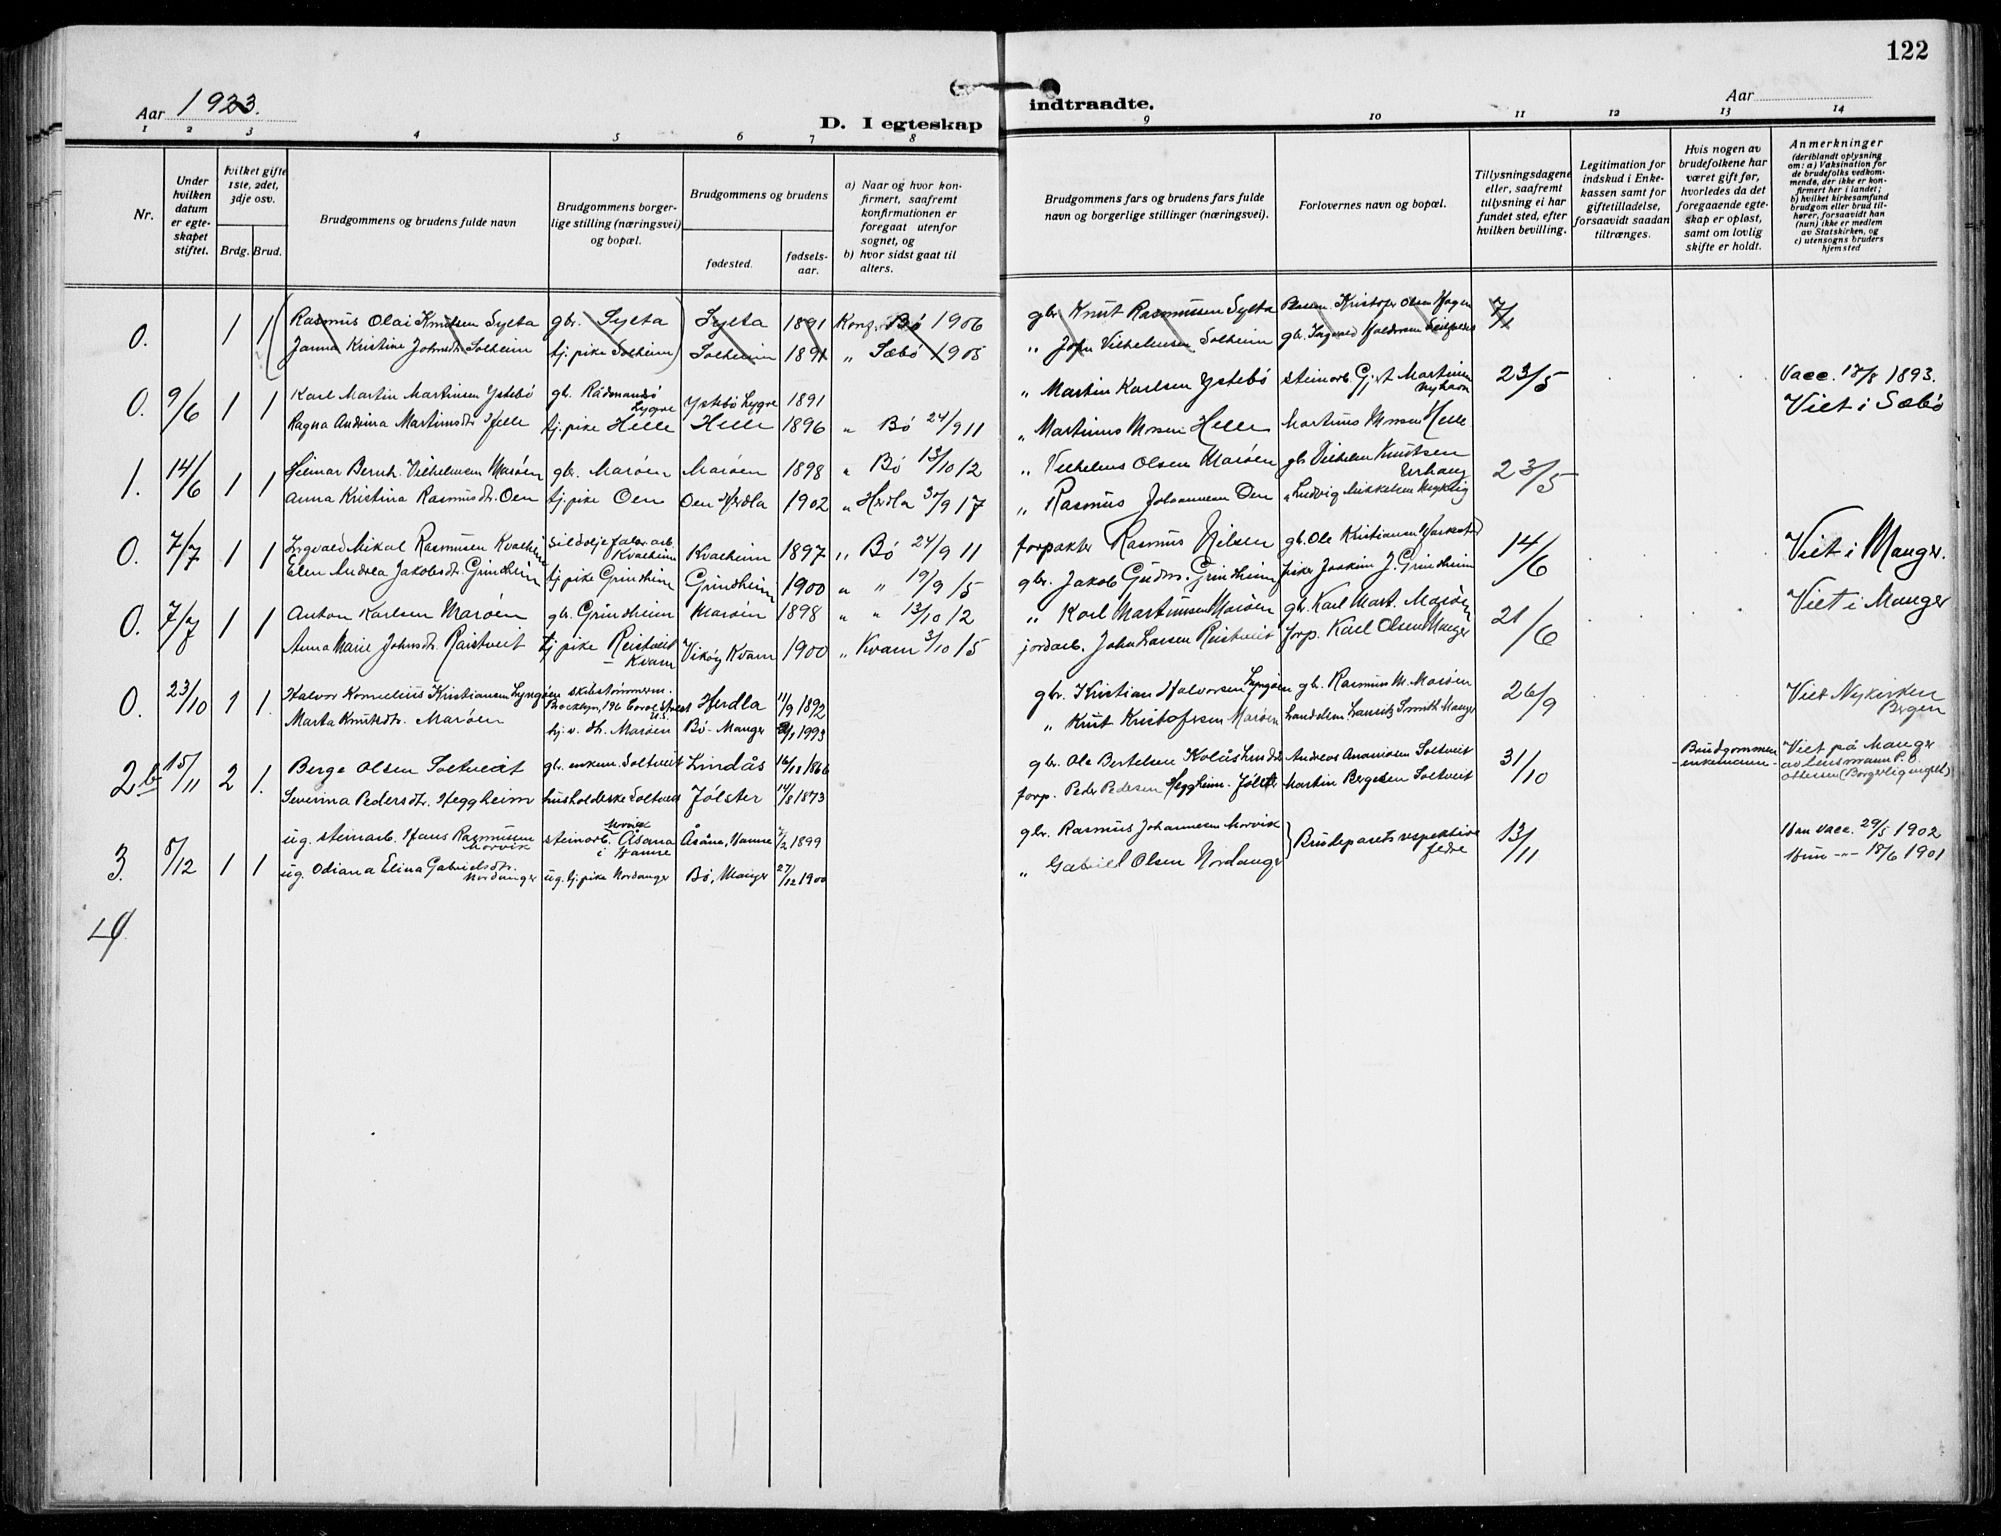 122
Aar 1923.
D. I egteskap
indtraadte.
Aar
1 2 3 4 5 6 7 8 9 10 11 12 13 14
Nr.
Under hvilken datum er egteskapet stiftet.
hvilket gifte 1ste, 2det, 3dje osv.
Brdg. Brud.
Brudgommens og brudens fulde navn
Brudgommens borgerlige stilling (næringsvei) og bopæl.
Brudgommens og brudens
fødested.
fødselsaar.
a) Naar og hvor konfirmert, saafremt konfirmationen er foregaat utenfor sognet, og
b) hvor sidst gaat til alters.
Brudgommens fars og brudens fars fulde navn og borgerlige stillinger (næringsvei).
Forlovernes navn og bopæl.
Tillysningsdagene eller, saafremt tillysning ei har fundet sted, efter hvilken bevilling.
Legitimation for indskud i Enkekassen samt for giftetilladelse, forsaavidt saadan tiltrænges.
Hvis nogen av brudefolkene har været gift før, hvorledes da det foregaaende egteskap er opløst, samt om lovlig skifte er holdt.
Anmerkninger
(deriblandt oplysning om: a) Vaksination for de brudefolks vedkommende, der ikke er konfirmert her i landet; b) hvilket kirkesamfund brudgom eller brud tilhører, forsaavidt han (hun) ikke er medlem av Statskirken, og c) utensogns bruders hjemsted
0. 1 1 Rasmus Olai Knutsen Sylta gbr. Sylta Sylta 1891 Konf. Bø 1906 gbr Knut Rasmussen Sylta Kristofer Olsen 7/1
Janna Kristine Johnsdt. Solheim tj. pike Solheim Solheim 1891 „ Sæbø 1905 „ John Vilhelmsen Solheim gbr. Ingvald
0. 9/6 1 1 Karl Martin Martinsen Ystebø gbr. Rådmandsø Lygre Ystebø Lygre 1891 „ Martin Karlsen Ystebø steinarb. Gjert Martinsen 23/5 Vacc. 18/8 1893.
Ragna Andrina Martinusdt. Helle tj. pike Helle Helle 1896 „ Bø 24/9 11 „ Martinus Monsen Helle Martinus Monsen Helle Viet i Sæbø
1. 14/6 1 1 Hilmar Bernh. Vilhelmsen Marøen gbr. Marøen Marøen 1898 „ Bø 13/10 12 „ Vilhelms Olsen Marøen gbr Vilhelm Knutsen 23/5
Anna Kristina Rasmusdt. Oen tj. pike Oen Oen Herdla 1902 „ Herdla 30/9 17 „ Rasmus Johannesen Oen „ Ludvig Mikkelsen
0. 7/7 1 1 Ingvald Mikal Rasmusen Kvalheim sildoljefabr. arb. Kvalheim Kvalheim 1897 „ Bø 24/9 11 forpakter Rasmus Nilsen gbr. Ole Kristiansen 14/6 Viet i Manger.
Elen Andrea Jakobsdt. Grindheim tj. pike Grindheim Grindheim 1900 „ „ 19/9 15 gbr. Jakob Gudm. Grindheim fisker Joakim J. Grindheim
0. 7/7 1 1 Anton Karlsen Marøen gbr. Grindheim Marøen 1898 „ „ 13/10 12 „ Karl Martinusen Marøen gbr. Karl Mart. Marøen 21/6 Viet i Manger
Anna Marie Johnsdt. Raistveit tj. pike Reistveit Kvam Vikøy Kvam 1900 „ Kvam 3/10 15 jordarb. John Larsen Reistveit forp. Karl Olsen Manger
0. 23/10 1 1. Halvor Kornelius Kristiansen Lyngøen skibstømmerm. Brooklyn, 196 U.S. Herdla 11/9 1892 gbr. Kristian Halvorsen Lyngøen gbr. Rasmus M. Marøen 26/9 Viet Nykirken Bergen
Marta Knutsdt. Marøen hj. v. dt. Marøen Bø. Manger 1993 „ Knut Kristofersen Marøen Landelm. Lauritz Smith Manger
2b 15/11 2 1. Berge Olsen Soltveit gbr. enkem. Soltveit Lindås 16/11 1866 gbr. Ole Bertelsen Kolås Lindås Andreas Ananiasen Soltveit 31/10 Brudgommen enkemann Viet på Manger av lensmann P. B. Ottesen (Borgerlig vigsel)
Severina Pedersdt. Heggheim husholderske Soltveit Jølster 14/8 1873 forp. Peder Pedesen Heggheim. Jølster Martin Bergesen Soltveit
3. 8/12 1 1 ug. steinarb. Hans Rasmussen Morvik steinarb. Morvik Åsane i Hamre Åsane, Hamre 7/2 1899 gbr. Rasmus Johannesen Morvik Brudeparets respektive fedre 13/11 Han vacc. 29/5 1902
ug. Odiana Elina Gabrielsdt. Nordanger ug. tj. pike Nordanger Bø, Manger 27/12 1900 „ Gabriel Olsen Nordanger Hun -„- 18/6 1901
4